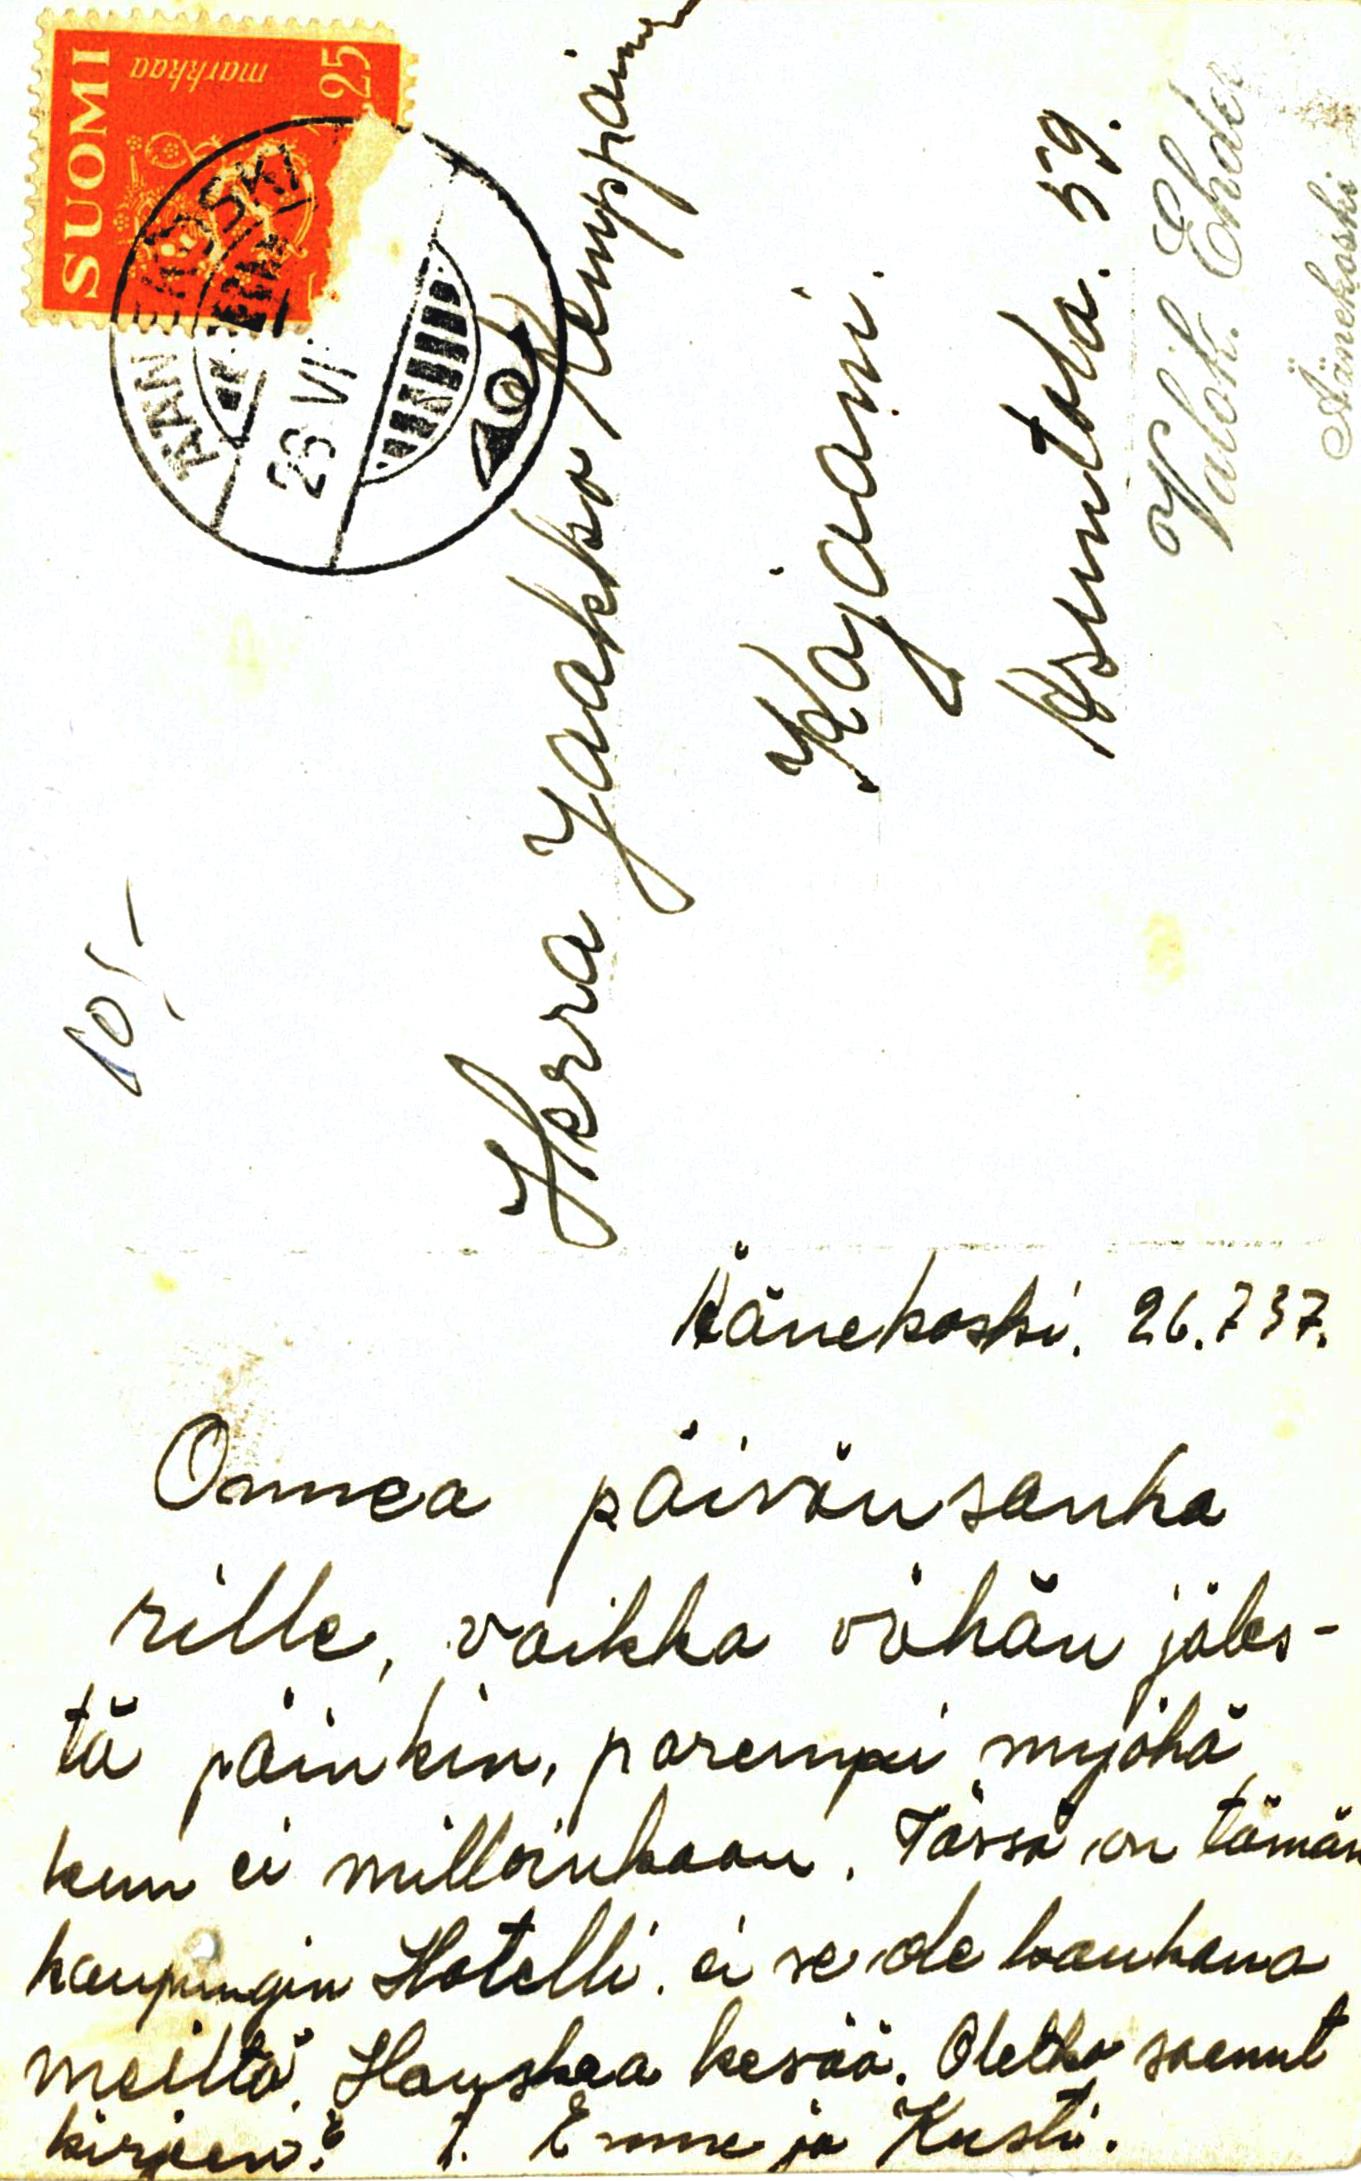 SUOMI
markkaa
1,25
ÄÄNEKOSKI
26 VI
10/-
Herra Jaakko Kemppainen
Kajaani.
Asuntola. 59.
Valok.
Äänekoski
Äänekoski. 26.7 37.
Onnea päivänsanka
rille, vaikka vähän jäles-
tä päinkin, parempi myöhä
kun ei milloinkaan. Tässä on tämän
kaupungin Hotelli. ei se ole kaukana
meiltä. Hauskaa kesää. Oletko saanut
kirjeen? t. Emme ja Kusti.